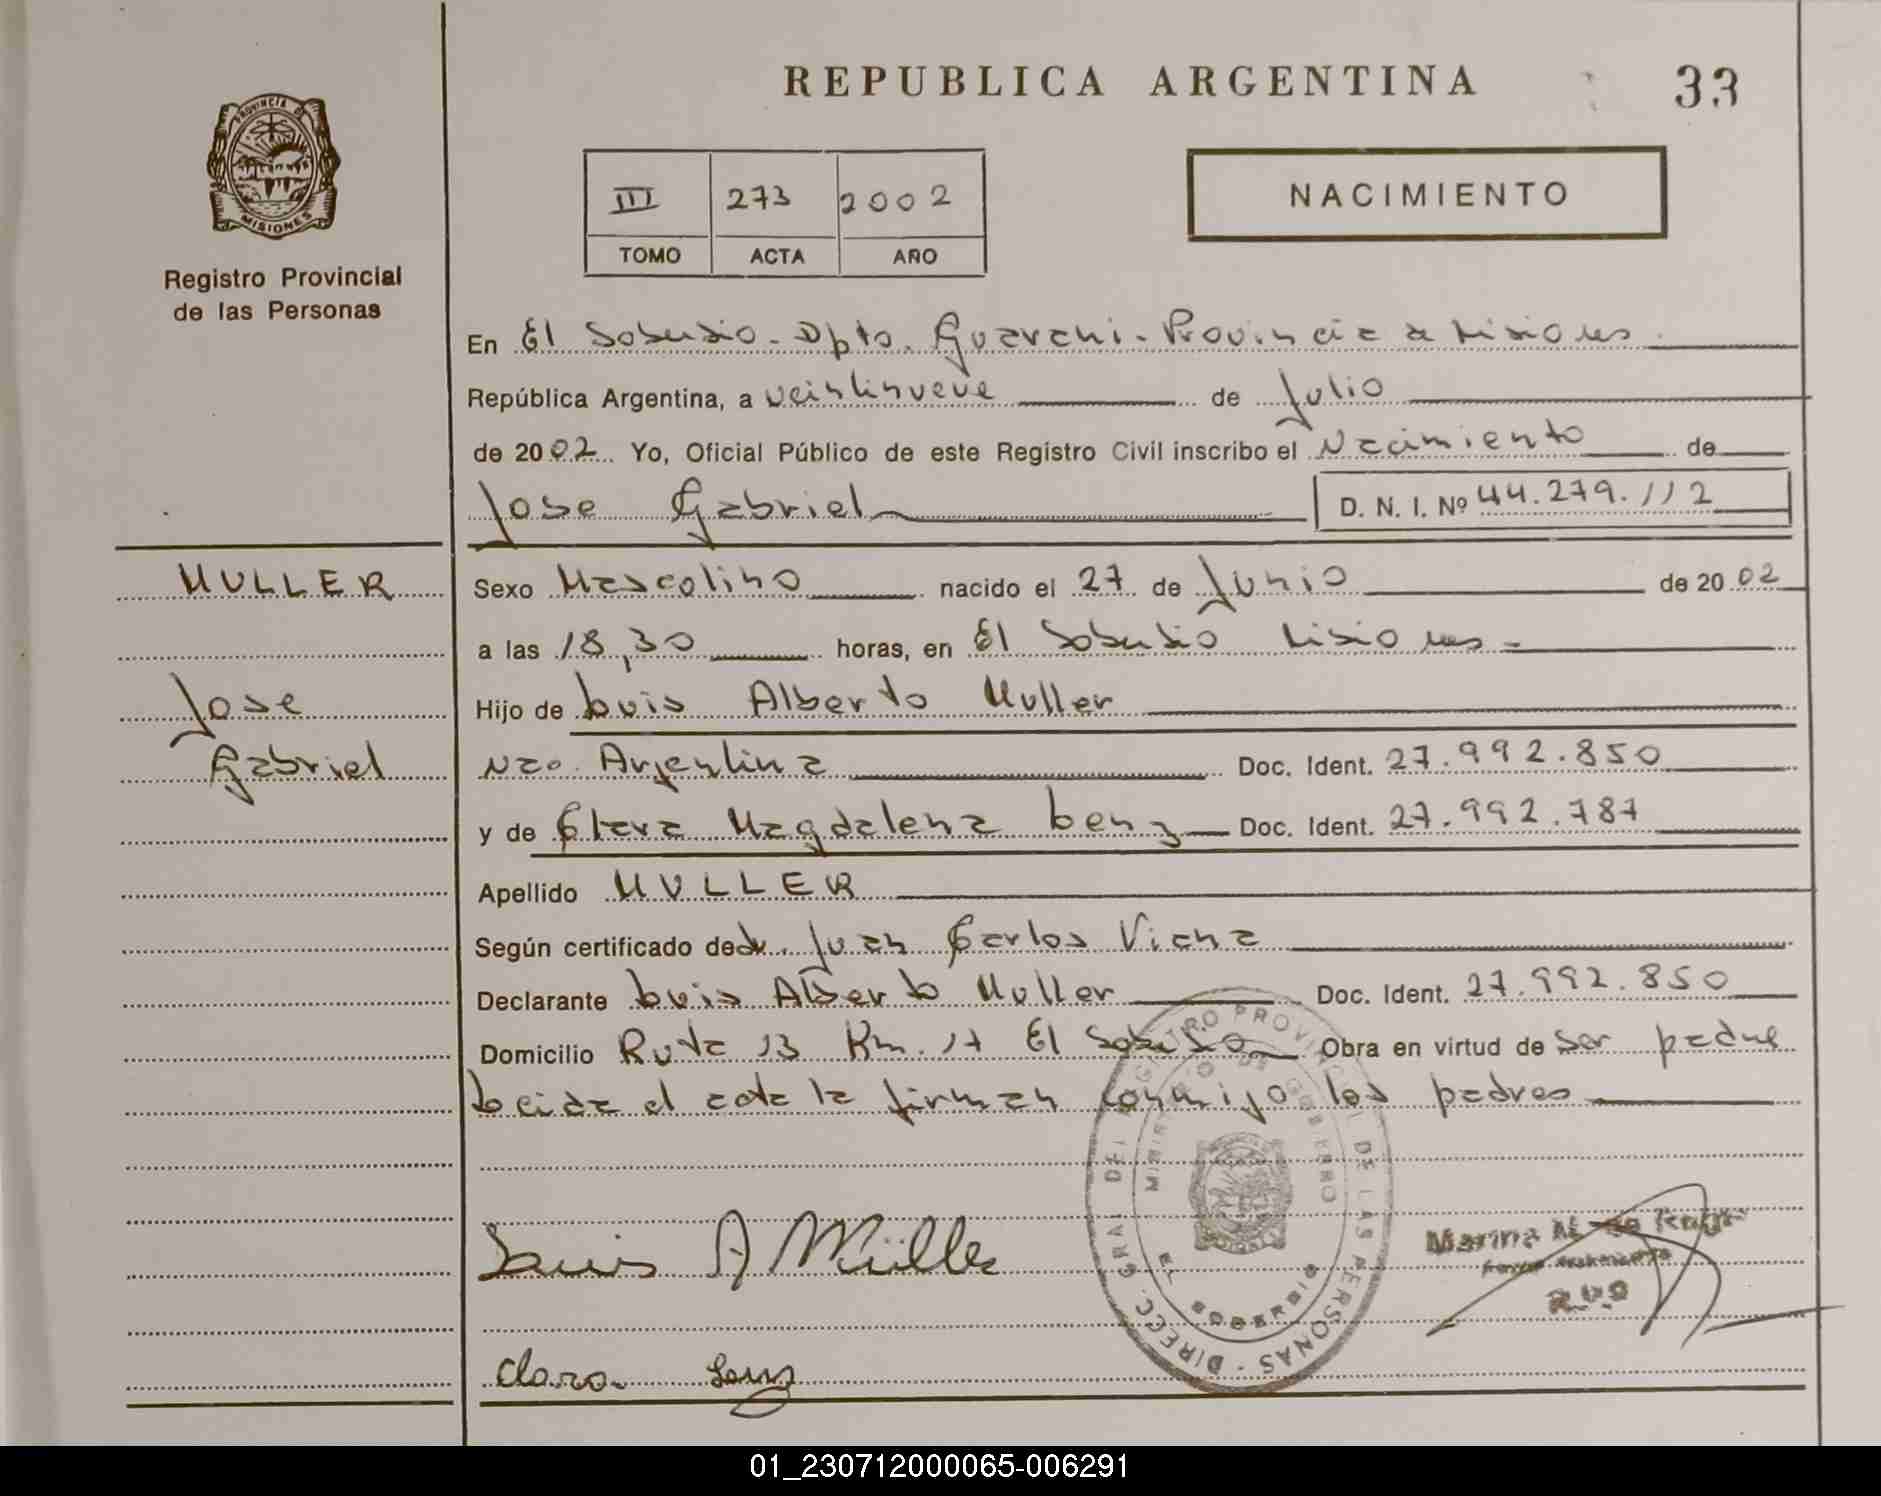 REPUBLICA ARGENTINA
33
PROVINCIA DE
MISIONES
Registro Provincial
de las Personas
III 273 2002
TOMO ACTA AÑO
NACIMIENTO
En El Soberbio - Dpto. Guarani - Provincia de Misiones
República Argentina, a veintinueve de Julio
de 2002 Yo, Oficial Público de este Registro Civil inscribo el Nacimiento de
Jose Gabriel D. N. I. Nº 44.279.112
MULLER
Jose
Gabriel
Sexo Masculino nacido el 27 de Junio de 2002
a las 18,30 horas, en El Soberbio Misiones -
Hijo de Luis Alberto Muller
Nac. Argentina Doc. Ident. 27.992.850
y de Clara Magdalena Lenz Doc. Ident. 27.992.787
Apellido MULLER
Según certificado de Juan Carlos Viana
Declarante Luis Alberto Muller Doc. Ident. 27.992.850
Domicilio Ruta 13 Km. 17 El Soberbio Obra en virtud de ser padre
Leida el acta la firman conmigo los padres
DIRECC. GRAL. DEL REGISTRO PROVINCIAL DE LAS PERSONAS
MINISTERIO DE GOBIERNO
EL SOBERBIO
Luis A Müller
Marina
Clara Lenz
01_230712000065-006291